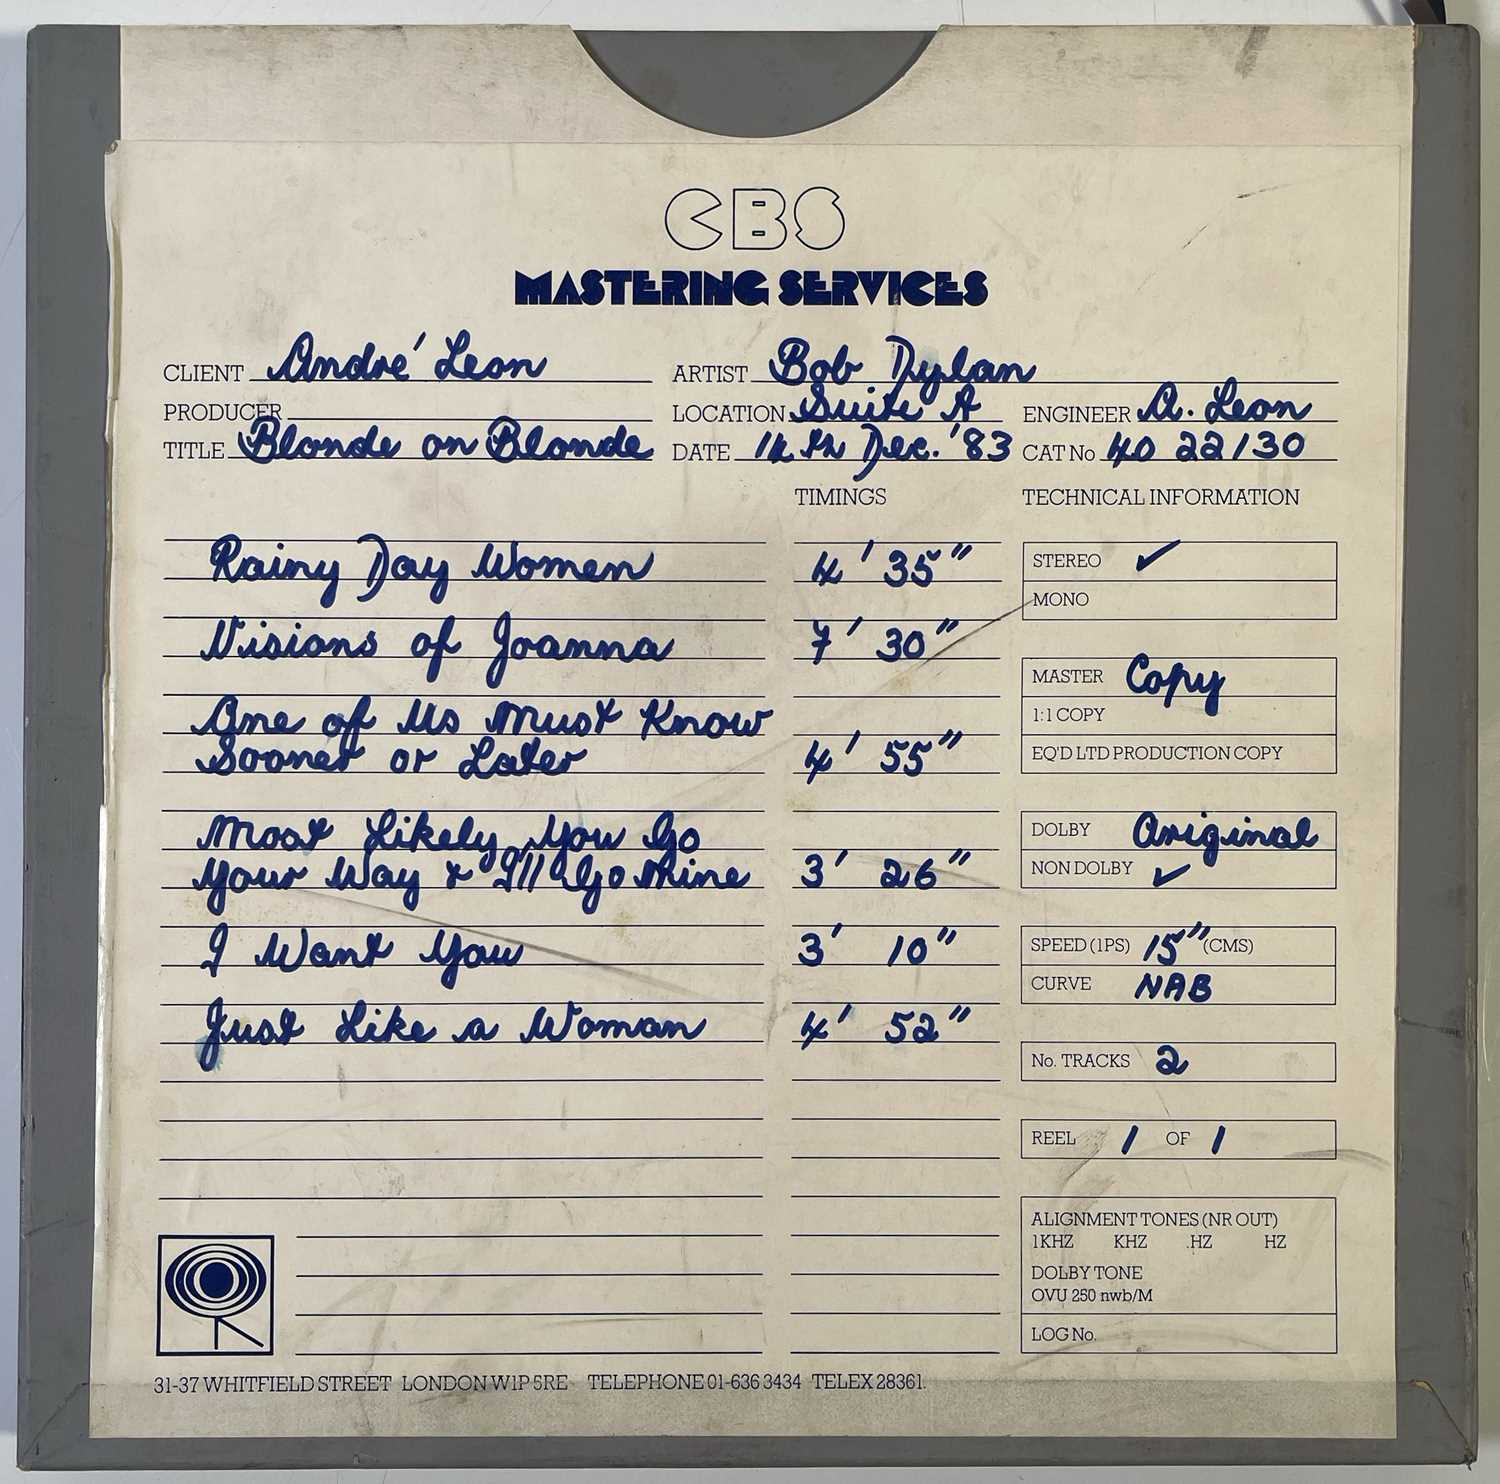 CBS
MASTERING SERVICES
CLIENT André Leon ARTIST Bob Dylan
PRODUCER LOCATION Suite A ENGINEER A. Leon
TITLE Blonde on Blonde DATE 14th Dec. '83 CAT No. 40 22130
TIMINGS TECHNICAL INFORMATION
Rainy Day Women 4' 35" STEREO ✓
MONO
Visions of Joanna 7' 30"
MASTER Copy
One of Us Must Know 1:1 COPY
Sooner or Later 4' 55" EQ'D LTD PRODUCTION COPY
Most Likely You Go DOLBY Original
Your Way & I'll Go Mine 3' 26" NON DOLBY ✓
I Want You 3' 10" SPEED (1PS) 15" (CMS)
CURVE NAB
Just Like a Woman 4' 52"
No. TRACKS 2
REEL 1 OF 1
ALIGNMENT TONES (NR OUT)
1KHZ KHZ .HZ HZ
DOLBY TONE
OVU 250 nwb/M
LOG No.
31-37 WHITFIELD STREET LONDON W1P 5RE TELEPHONE 01-636 3434 TELEX 28361.